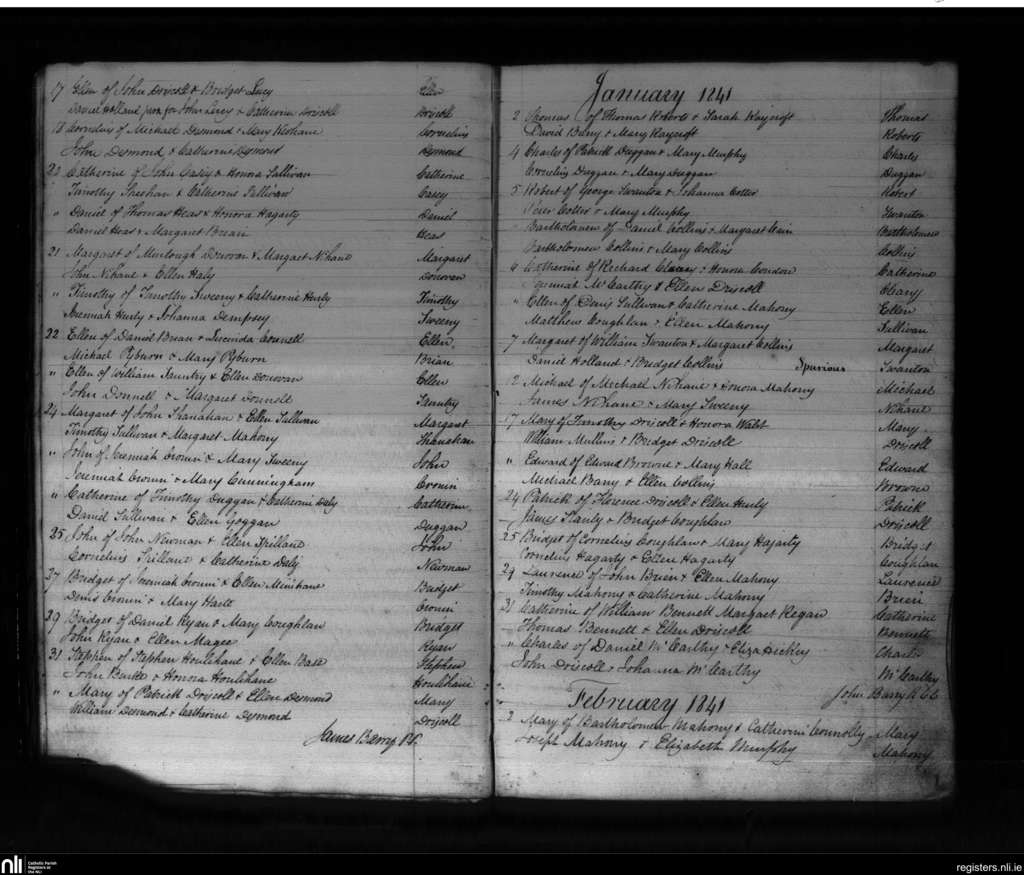 17 Ellen of John Driscoll & Bridget Lucy Ellen
Daniel Holland for John Lucy & Catherine Driscoll Driscoll
18 Cornelius of Michael Desmond & Mary Keohane Cornelius
John Desmond & Catherine Desmond Desmond
20 Catherine of John Casey & Honora Sullivan Catherine
Timothy Sheehan & Catherine Sullivan Casey
" Daniel of Thomas Heas & Honora Hagarty Daniel
Daniel Heas & Margaret Brian Heas
21 Margaret of Murlough Donovan & Margaret Nihane Margaret
John Nihane & Ellen Haly Donovan
" Timothy of Timothy Sweeny & Catherine Hurly Timothy
Jeremiah Hurly & Johanna Dempsey Sweeny
22 Ellen of Daniel Brian & Lucinda Ellen
Michael Ryburn & Mary Ryburn Brian
" Ellen of William & Ellen Donovan Ellen
John Donnell & Margaret Donnell
24 Margaret of John Shanahan & Ellen Sullivan Margaret
Timothy Sullivan & Margaret Mahony Shanahan
" John of Jeremiah Cronin & Mary Sweeny John
Jeremiah Cronin & Mary Cunningham Cronin
" Catherine of Timothy Duggan & Catherine Daly Catherine
Daniel Sullivan & Ellen Goggan Duggan
25 John of John Newman & Ellen Spillane John
Cornelius Spillane & Catherine Daly Newman
27 Bridget of Jeremiah Cronin & Ellen Minihane Bridget
Denis Cronin & Mary Harte Cronin
29 Bridget of Daniel Ryan & Mary Coughlan Bridget
John Ryan & Ellen Magee Ryan
31 Stephen of Stephen Houlihane & Ellen Stephen
John Burke & Honora Houlihane Houlihane
" Mary of Patrick Driscoll & Ellen Desmond Mary
William Desmond & Catherine Desmond Driscoll
James Barry P.P.
January 1841
2 Thomas of Thomas Roberts & Sarah Raycroft Thomas
David Barry & Mary Raycroft Roberts
4 Charles of Patrick Duggan & Mary Murphy Charles
Cornelius Duggan & Mary Duggan Duggan
5 Robert of George Swanton & Johanna Cotter Robert
Peter Cotter & Mary Murphy Swanton
" Bartholomew of Daniel Collins & Margaret Bartholomew
Bartholomew Collins & Mary Collins Collins
6 Catherine of Richard Cleary & Honora Condon Catherine
Jeremiah McCarthy & Ellen Driscoll Cleary
" Ellen of Denis Sullivan & Catherine Mahony Ellen
Matthew Coughlan & Ellen Mahony Sullivan
7 Margaret of William Swanton & Margaret Collins Margaret
Daniel Holland & Bridget Collins Spurious Swanton
12 Michael of Michael Nihane & Honora Mahony Michael
James Nihane & Mary Sweeny Nihane
17 Mary of Timothy Driscoll & Honora Walsh Mary
William Mullins & Bridget Driscoll Driscoll
" Edward of Edward Browne & Mary Hall Edward
Michael Barry & Ellen Collins Browne
24 Patrick of Florence Driscoll & Ellen Hurly Patrick
James Stanly & Bridget Coughlan Driscoll
25 Bridget of Cornelius Coughlan & Mary Hagarty Bridget
Cornelius Hagarty & Ellen Hagarty Coughlan
29 Laurence of John Brien & Ellen Mahony Laurence
Timothy Mahony & Catherine Mahony Brien
31 Catherine of William Bennett Margaret Regan Catherine
Thomas Bennett & Ellen Driscoll Bennett
" Charles of Daniel McCarthy & Eliza Hickey Charles
John Driscoll & Johanna McCarthy McCarthy
John Barry R.C.C.
February 1841
2 Mary of Bartholomew Mahony & Catherine Connolly Mary
Joseph Mahony & Elizabeth Murphy Mahony
nli
Catholic Parish
Registers at
the NLI
registers.nli.ie